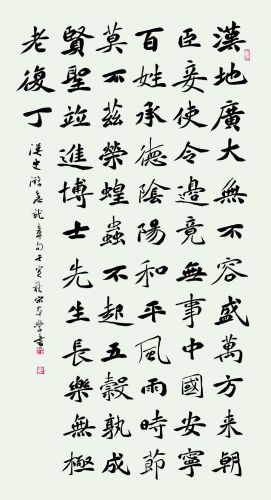 漢地廣大無不容盛萬方來朝
臣妾使令邊竟無事中國安寧
百姓承德陰陽和平風雨時節
莫不茲榮蝗蟲不起五穀孰成
賢聖竝進博士先生長樂無極
老復丁
漢史游急就章句壬寅秋書